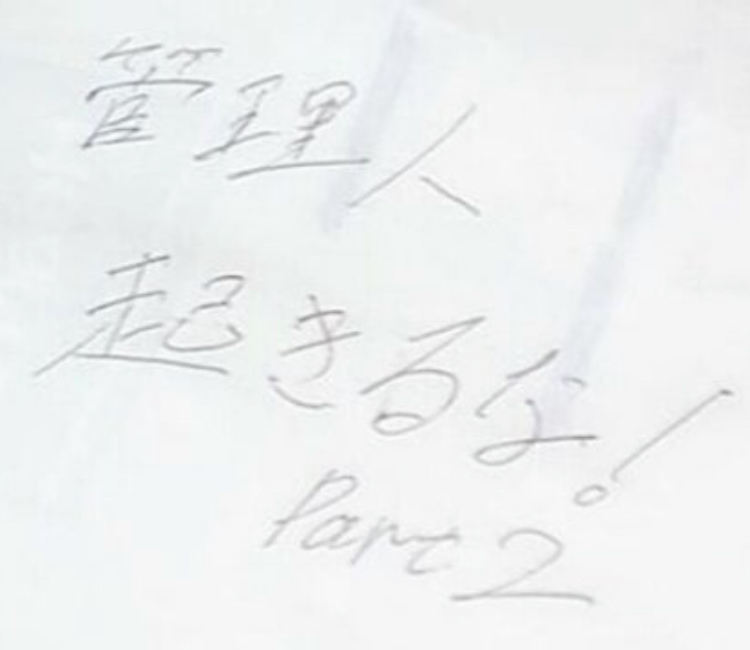 管理人
起きるな!
Part 2